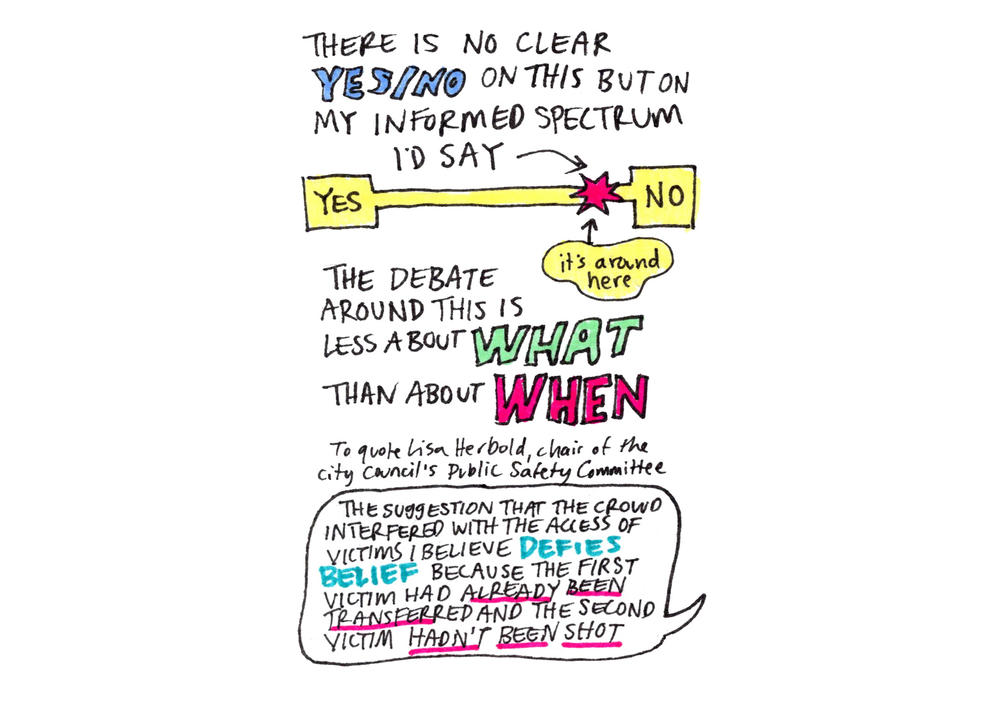 THERE IS NO CLEAR
YES/NO ON THIS BUT ON
MY INFORMED SPECTRUM
I'D SAY
YES
NO
it's around
here
THE DEBATE
AROUND THIS IS
LESS ABOUT WHAT
THAN ABOUT WHEN
To quote Lisa Herbold, chair of the
city Council's Public Safety Committee
THE SUGGESTION THAT THE CROWD
INTERFERED WITH THE ACCESS OF
VICTIMS I BELIEVE DEFIES
BELIEF BECAUSE THE FIRST
VICTIM HAD ALREADY BEEN
TRANSFERRED AND THE SECOND
VICTIM HADN'T BEEN SHOT